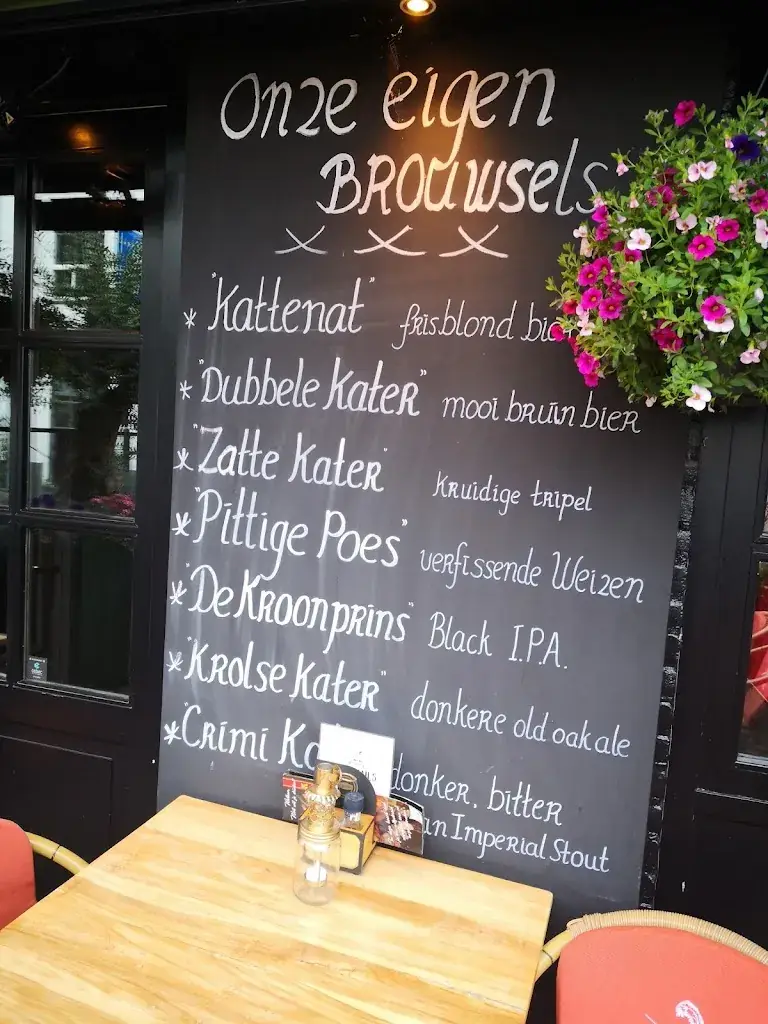 Onze eigen
BROUWSELS
* "Kattenat" frisblond
* "Dubbele Kater" mooi bruin bier
* "Zatte Kater" kruidige tripel
* "Pittige Poes" verfissende Weizen
* "De Kroonprins" Black I.P.A.
* "Krolse Kater" donkere old oak ale
* "Crimi donker, bitter
Imperial Stout